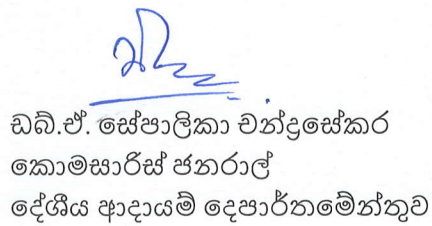 ඩබ්.ඒ. සේපාලිකා චන්ද්‍රසේකර
කොමසාරිස් ජනරාල්
දේශීය ආදායම් දෙපාර්තමේන්තුව